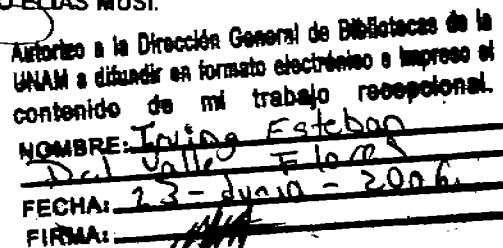 ELIAS MUSI.
Autorizo a la Dirección General de Bibliotecas de la
UNAM a difundir en formato electrónico e impreso el
contenido de mi trabajo recepcional.
NOMBRE: Irving Esteban
Del Valle Flores
FECHA: 23-Junio-2006.
FIRMA: